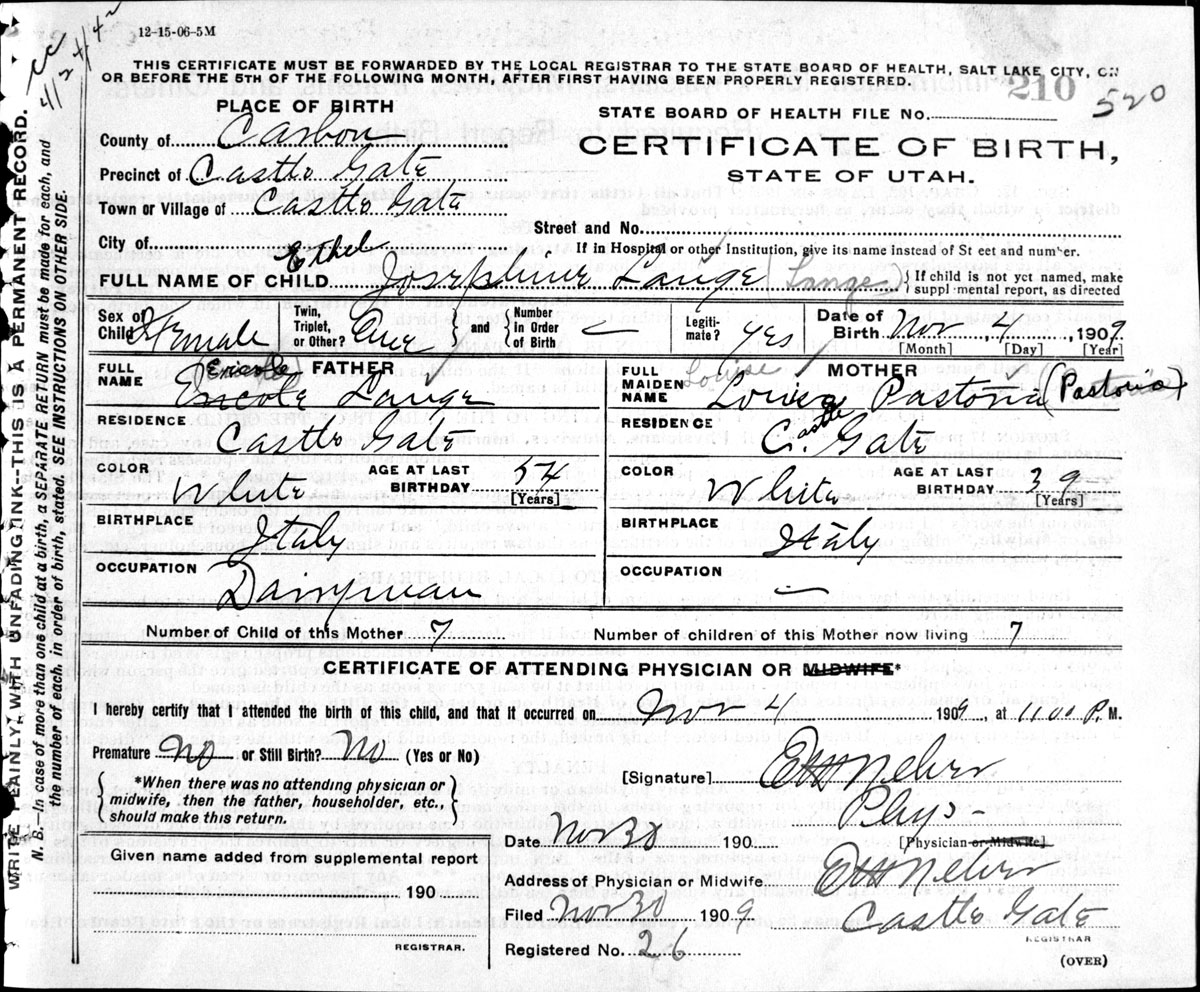 12-15-06-5M
THIS CERTIFICATE MUST BE FORWARDED BY THE LOCAL REGISTRAR TO THE STATE BOARD OF HEALTH, SALT LAKE CITY, ON
OR BEFORE THE 5TH OF THE FOLLOWING MONTH, AFTER FIRST HAVING BEEN PROPERLY REGISTERED.
210 520
PLACE OF BIRTH
STATE BOARD OF HEALTH FILE No.
County of Carbon
CERTIFICATE OF BIRTH,
Precinct of Castle Gate
STATE OF UTAH.
Town or Village of Castle Gate
Street and No.
City of
If in Hospital or other Institution, give its name instead of St eet and number.
FULL NAME OF CHILD Ethel Josephine Lange (Lange)
{ If child is not yet named, make
suppl mental report, as directed
Sex of Child Female
Twin, Triplet, or Other? One } and { Number in Order of Birth
Legiti- mate? Yes
Date of Birth Nov, 4, 1909
[Month] [Day] [Year]
FATHER
FULL NAME Ericole Lange
RESIDENCE Castle Gate
COLOR White AGE AT LAST BIRTHDAY 54 [Years]
BIRTHPLACE Italy
OCCUPATION Dairyman
MOTHER
FULL MAIDEN NAME Louise Pastoria (Pastorio)
RESIDENCE Castle Gate
COLOR White AGE AT LAST BIRTHDAY 39 [Years]
BIRTHPLACE Italy
OCCUPATION —
Number of Child of this Mother 7 Number of children of this Mother now living 7
CERTIFICATE OF ATTENDING PHYSICIAN OR MIDWIFE*
I hereby certify that I attended the birth of this child, and that it occurred on Nov 4 1909, at 11 00 P. M.
Premature No or Still Birth? No (Yes or No)
{ *When there was no attending physician or
midwife, then the father, householder, etc.,
should make this return. }
[Signature]
Phys-
[Physician or Midwife]
Given name added from supplemental report
190
REGISTRAR.
Date Nov 30 190
Address of Physician or Midwife
Filed Nov 30 1909 Castle Gate
REGISTRAR
Registered No. 26
(OVER)
WRITE PLAINLY, WITH UNFADING INK--THIS IS A PERMANENT RECORD.
N. B.—In case of more than one child at a birth, a SEPARATE RETURN must be made for each, and
the number of each, in order of birth, stated. SEE INSTRUCTIONS ON OTHER SIDE.